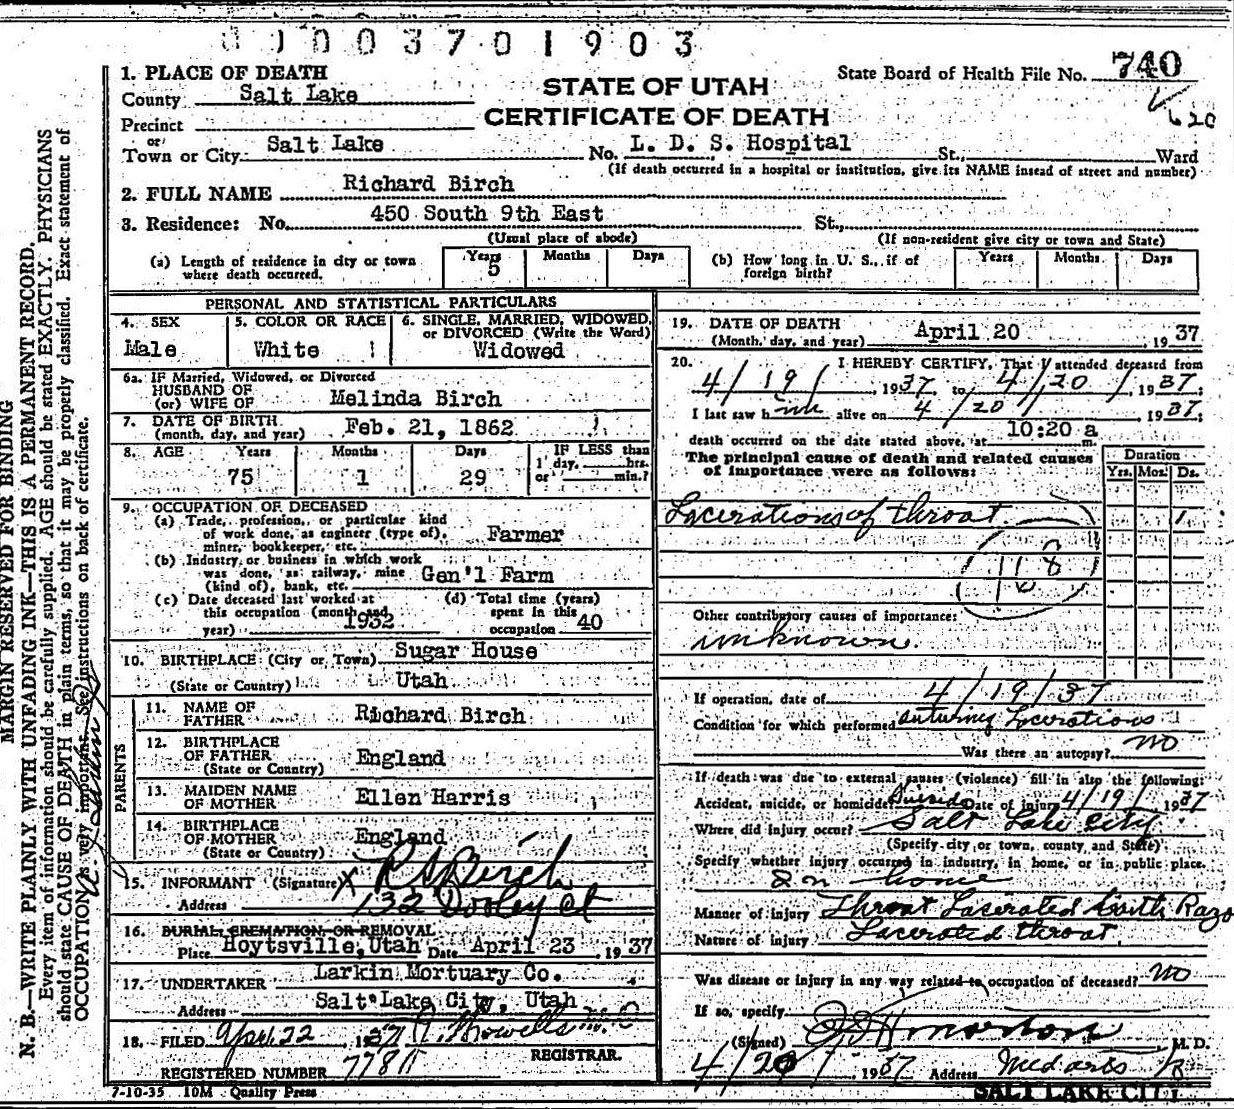 0 0 0 3 7 0 1 9 0 3
State Board of Health File No. 740
620
STATE OF UTAH
CERTIFICATE OF DEATH
1. PLACE OF DEATH
County Salt Lake
Precinct
or
Town or City Salt Lake No. L. D. S. Hospital St., Ward
(If death occurred in a hospital or institution, give its NAME insead of street and number)
2. FULL NAME Richard Birch
3. Residence: No. 450 South 9th East St.,
(Usual place of abode) (If non-resident give city or town and State)
(a) Length of residence in city or town where death occurred. Years 5 Months Days
(b) How long in U. S., if of foreign birth? Years Months Days
PERSONAL AND STATISTICAL PARTICULARS
4. SEX Male
5. COLOR OR RACE White
6. SINGLE, MARRIED, WIDOWED, or DIVORCED (Write the Word) Widowed
6a. IF Married, Widowed, or Divorced
HUSBAND OF
(or) WIFE OF Melinda Birch
7. DATE OF BIRTH
(month, day, and year) Feb. 21, 1862
8. AGE Years 75 Months 1 Days 29 IF LESS than 1 day, hrs. or min.?
9. OCCUPATION OF DECEASED
(a) Trade, profession, or particular kind
of work done, as engineer (type of),
miner, bookkeeper, etc. Farmer
(b) Industry or business in which work
was done, as railway, mine
(kind of), bank, etc. Gen'l Farm
(c) Date deceased last worked at
this occupation (month and
year) 1932
(d) Total time (years)
spent in this
occupation 40
10. BIRTHPLACE (City or Town) Sugar House
(State or Country) Utah
PARENTS
11. NAME OF
FATHER Richard Birch
12. BIRTHPLACE
OF FATHER
(State or Country) England
13. MAIDEN NAME
OF MOTHER Ellen Harris
14. BIRTHPLACE
OF MOTHER
(State or Country) England
15. INFORMANT (Signature) X R S Birch
Address 132 Dooley Ct
16. BURIAL, CREMATION, OR REMOVAL
Place Hoytsville, Utah Date April 23, 1937
17. UNDERTAKER Larkin Mortuary Co.
Address Salt Lake City, Utah
18. FILED April 22 1937
REGISTRAR.
REGISTERED NUMBER
7-10-35 10M Quality Press
19. DATE OF DEATH
(Month, day, and year) April 20, 1937
20. I HEREBY CERTIFY, That I attended deceased from
4/19/, 1937, to 4/20/, 1937;
I last saw him alive on 4/20/ 1937;
death occurred on the date stated above, at 10:20 a m.
The principal cause of death and related causes
of importance were as follows:
Duration
Yrs. Mos. Ds.
Lacerations of throat 1
118
Other contributory causes of importance:
unknown.
If operation, date of 4/19/37
Condition for which performed suturing Lacerations
Was there an autopsy? no
If death was due to external causes (violence) fill in also the following:
Accident, suicide, or homicide? Suicide Date of injury 4/19/ 1937
Where did injury occur? Salt Lake City
(Specify city or town, county and State)
Specify whether injury occurred in industry, in home, or in public place.
In home
Manner of injury Throat Lacerated with Razo
Nature of injury Lacerated throat.
Was disease or injury in any way related to occupation of deceased? no
If so, specify
(Signed) Morton M. D.
4/20/ 1937 Address Med arts
SALT LAKE CITY
MARGIN RESERVED FOR BINDING
N. B.—WRITE PLAINLY WITH UNFADING INK—THIS IS A PERMANENT RECORD.
Every item of information should be carefully supplied. AGE should be stated EXACTLY. PHYSICIANS
should state CAUSE OF DEATH in plain terms, so that it may be properly classified. Exact statement of
OCCUPATION is very important. See instructions on back of certificate.